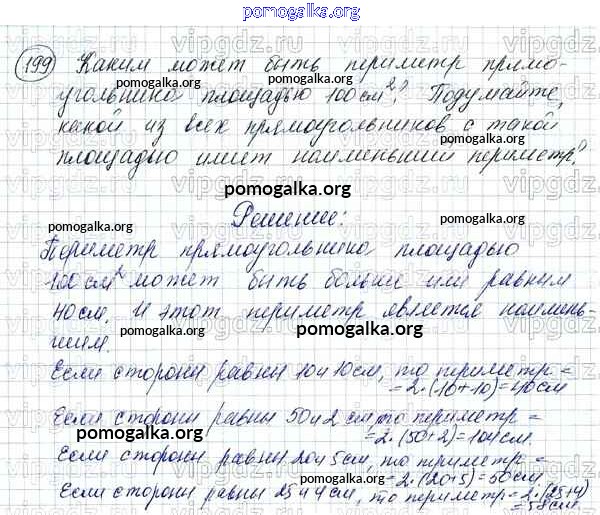 pomogalka.org
199 Каким может быть периметр прямо-
угольника площадью 100 см²? Подумайте,
какой из всех прямоугольников с такой
площадью имеет наименьший периметр?
Решение:
Периметр прямоугольника площадью
100 см² может быть больше или равным
40 см. И этот периметр является наимень-
шим.
Если стороны равны 10 и 10 см, то периметр =
= 2·(10+10)=40 см
Если стороны равны 50 и 2 см, то периметр =
= 2·(50+2)=104 см.
Если стороны равны 20 и 5 см, то периметр =
= 2·(20+5)=50 см.
Если стороны равны 25 и 4 см, то периметр = 2·(25+4)
= 58 см.